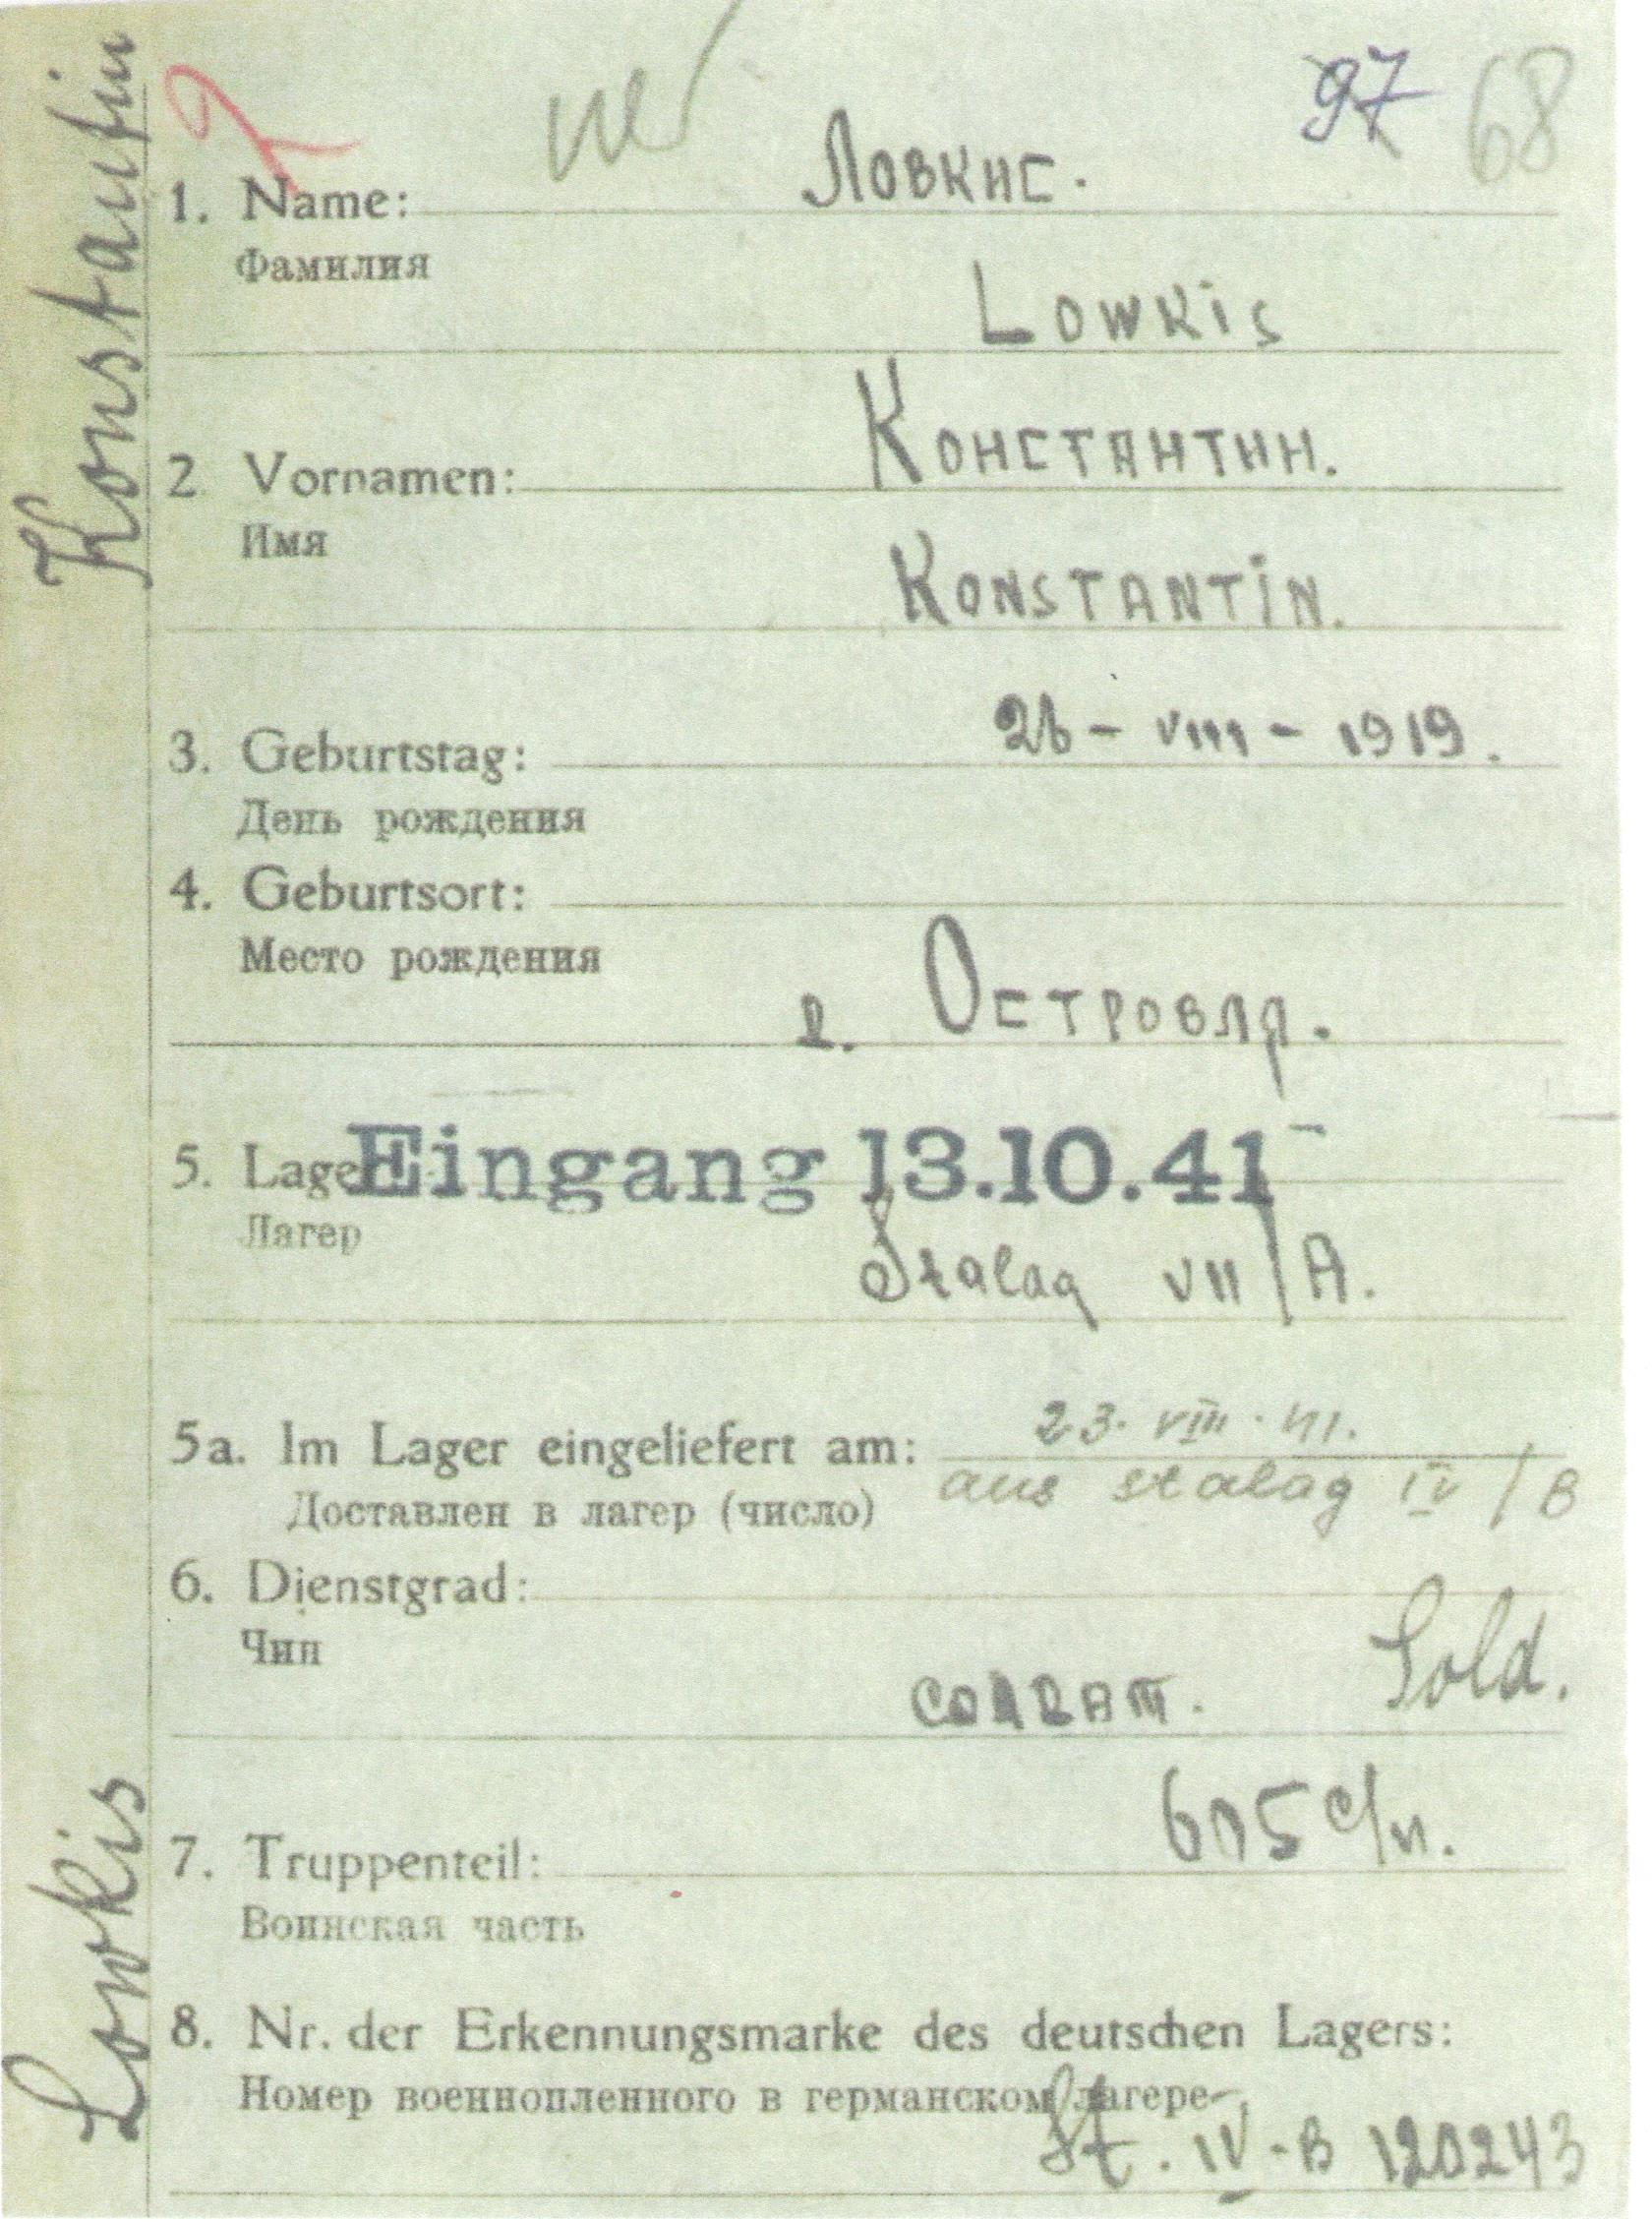 Konstantin
Lowkis
97 68
1. Name: Ловкис.
Фамилия
Lowkis
2 Vornamen: Константин.
Имя
Konstantin.
3. Geburtstag: 26 - VIII - 1919.
День рождения
4. Geburtsort:
Место рождения
д. Островля.
5. Lager
Eingang 13.10.41
Лагер
Stalag VII/A.
5a. Im Lager eingeliefert am: 23. VIII. 41.
Доставлен в лагер (число) aus stalag IV/B
6. Dienstgrad:
Чин
солдат. Sold.
7. Truppenteil: 605 с/п.
Воинская часть
8. Nr. der Erkennungsmarke des deutschen Lagers:
Номер военнопленного в германском лагере
St. IV-B 120243